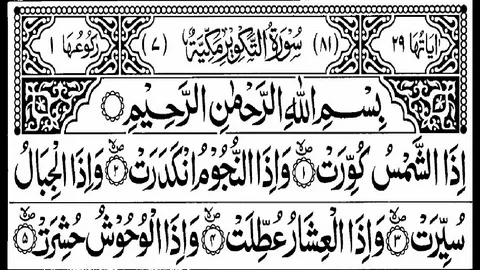 اٰیَاتُهَا ٢٩ (٨١) سُوْرَةُ التَّكْوِيْرِ مَكِّيَّةٌ (٧) رُكُوْعُهَا ١
بِسْمِ اللّٰهِ الرَّحْمٰنِ الرَّحِيْمِ
اِذَا الشَّمْسُ كُوِّرَتْ ۙ ١ وَاِذَا النُّجُوْمُ انْكَدَرَتْ ۙ ٢ وَاِذَا الْجِبَالُ
سُيِّرَتْ ۙ ٣ وَاِذَا الْعِشَارُ عُطِّلَتْ ۙ ٤ وَاِذَا الْوُحُوْشُ حُشِرَتْ ۙ ٥